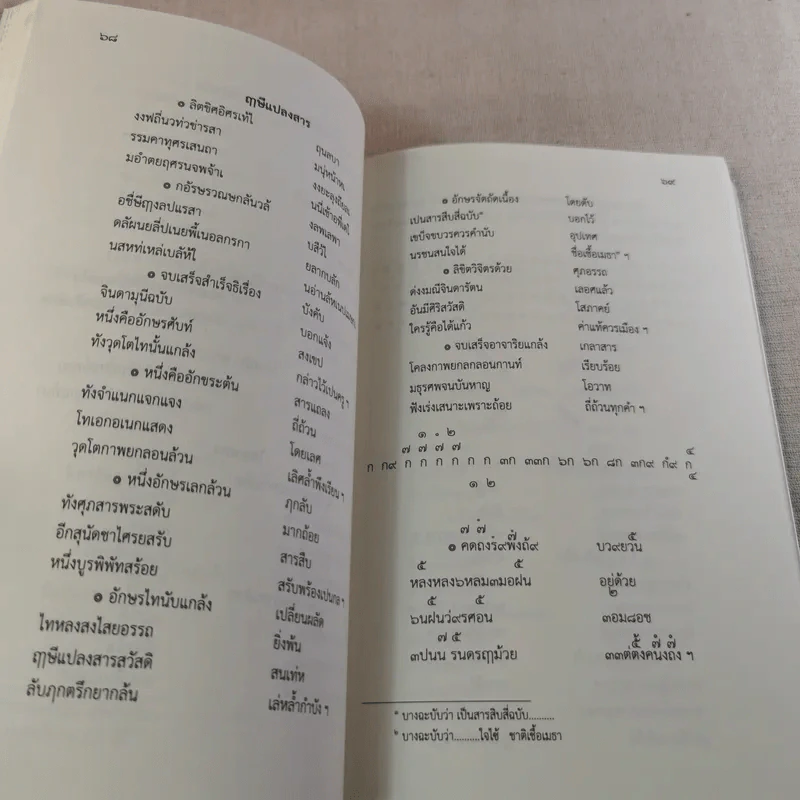 ๖๘
ฤๅษีแปลงสาร
๏ ลิตขิศอิศรเท้ไ ฤนลบา
งงฟถี่นวท่วข่ารสา มนุ่หน้าหเ
รรมคาทุศรเสนถา
มอำตยฤศรนจพจ้าเ
๏ กอัรษรวณษกลันวลั งลพเลพา
อชี่ษีฤๅงลปแรสา บสิวั้ไ
ดลัผนยลี่ปเนยพี้เนอลกรกา ยลากบลัก
นสหท่เหล่เบลัห้ไ
๏ จบเสร็จสำเร็จธิเรื่อง บังคับ
จินดามุนีฉบับ บอกแจ้ง
หนึ่งคืออักษรศัพท์ สงเขป
ทังวุดโตไทนั้นแกล้ง กล่าวไว้เปนครู ฯ
๏ หนึ่งคืออักขระต้น สารแถลง
ทังจำแนกแจกแจง ถี่ถ้วน
โทเอกอเนกแสดง โดยเลศ
วุดโตกาพยกลอนล้วน เลิศล้ำพึงเรียน ฯ
๏ หนึ่งอักษรเลกล้วน ภุกลับ
ทังศุภสารพระสดับ มากถ้อย
อีกสุนัดชาไศรยสรับ สารสืบ
หนึ่งบูรพิพัทสร้อย สรับพร้องเปนกล ฯ
๏ อักษรไทนับแกล้ง เปลี่ยนผลัด
ไทหลงสงไสยอรรถ ยิ่งพ้น
ฤๅษีแปลงสารสวัสดิ สนเท่ห
ลับภุกตรึกยากล้น เล่หล้ำกำบัง ฯ
๖๙
๏ อักษรจัดถัดเนื้อง โดยดับ
เปนสารสิบสี่ฉบับ๑ บอกไว้
เขบ็จขบวรควรคำนับ อุปเทศ
นรชนสนใจได้ ชื่อเชื้อเมธา๒ ฯ
๏ ลิขิตวิจิตรด้วย ศุภอรรถ
ด่งงมณีจินดารัตน เลอศแล้ว
อันมีศิริสวัสดิ โสภาคย์
ใครรู้คือได้แก้ว ค่าแท้ควรเมือง ฯ
๏ จบเสร็จอาจาริยแกล้ง เกลาสาร
โคลงกาพยกลกลอนกานท์ เรียบร้อย
มธุรศพจนบันหาญ โอวาท
ฟังเร่งเสนาะเพราะถ้อย ถี่ถ้วนทุกคำ ฯ
๑ ๋ ๒
๗ ๗ ๗ ๗ ๔
ก ก๙ ก ก ก ก ก ก ๓ก ๓๓ก ๖ก ๖ก ๘ก ๓ก๙ ก๋๙ ก
๑ ๒ ๔
๗ ๗ ๗ ๕
๏ คดถงร๋๙พ๋งถั๙ บว๙ยวน
๕ ๕
หลงหลง๖หลม๓มอฝน อยู่ด้วย
๕ ๕ ๒
๖นฝนว่๙รศอน ๓อม๘อช
๗ ๕ ๕ ๗ ๗
๓ปนน รนดรฤๅม้วย ๓๓ต่ตั้งคนึงถึง ฯ
๑ บางฉะบับว่า เป็นสารสิบสี่ฉบับ..........
๒ บางฉะบับว่า..........ใจไช้ ชาติเชื้อเมธา